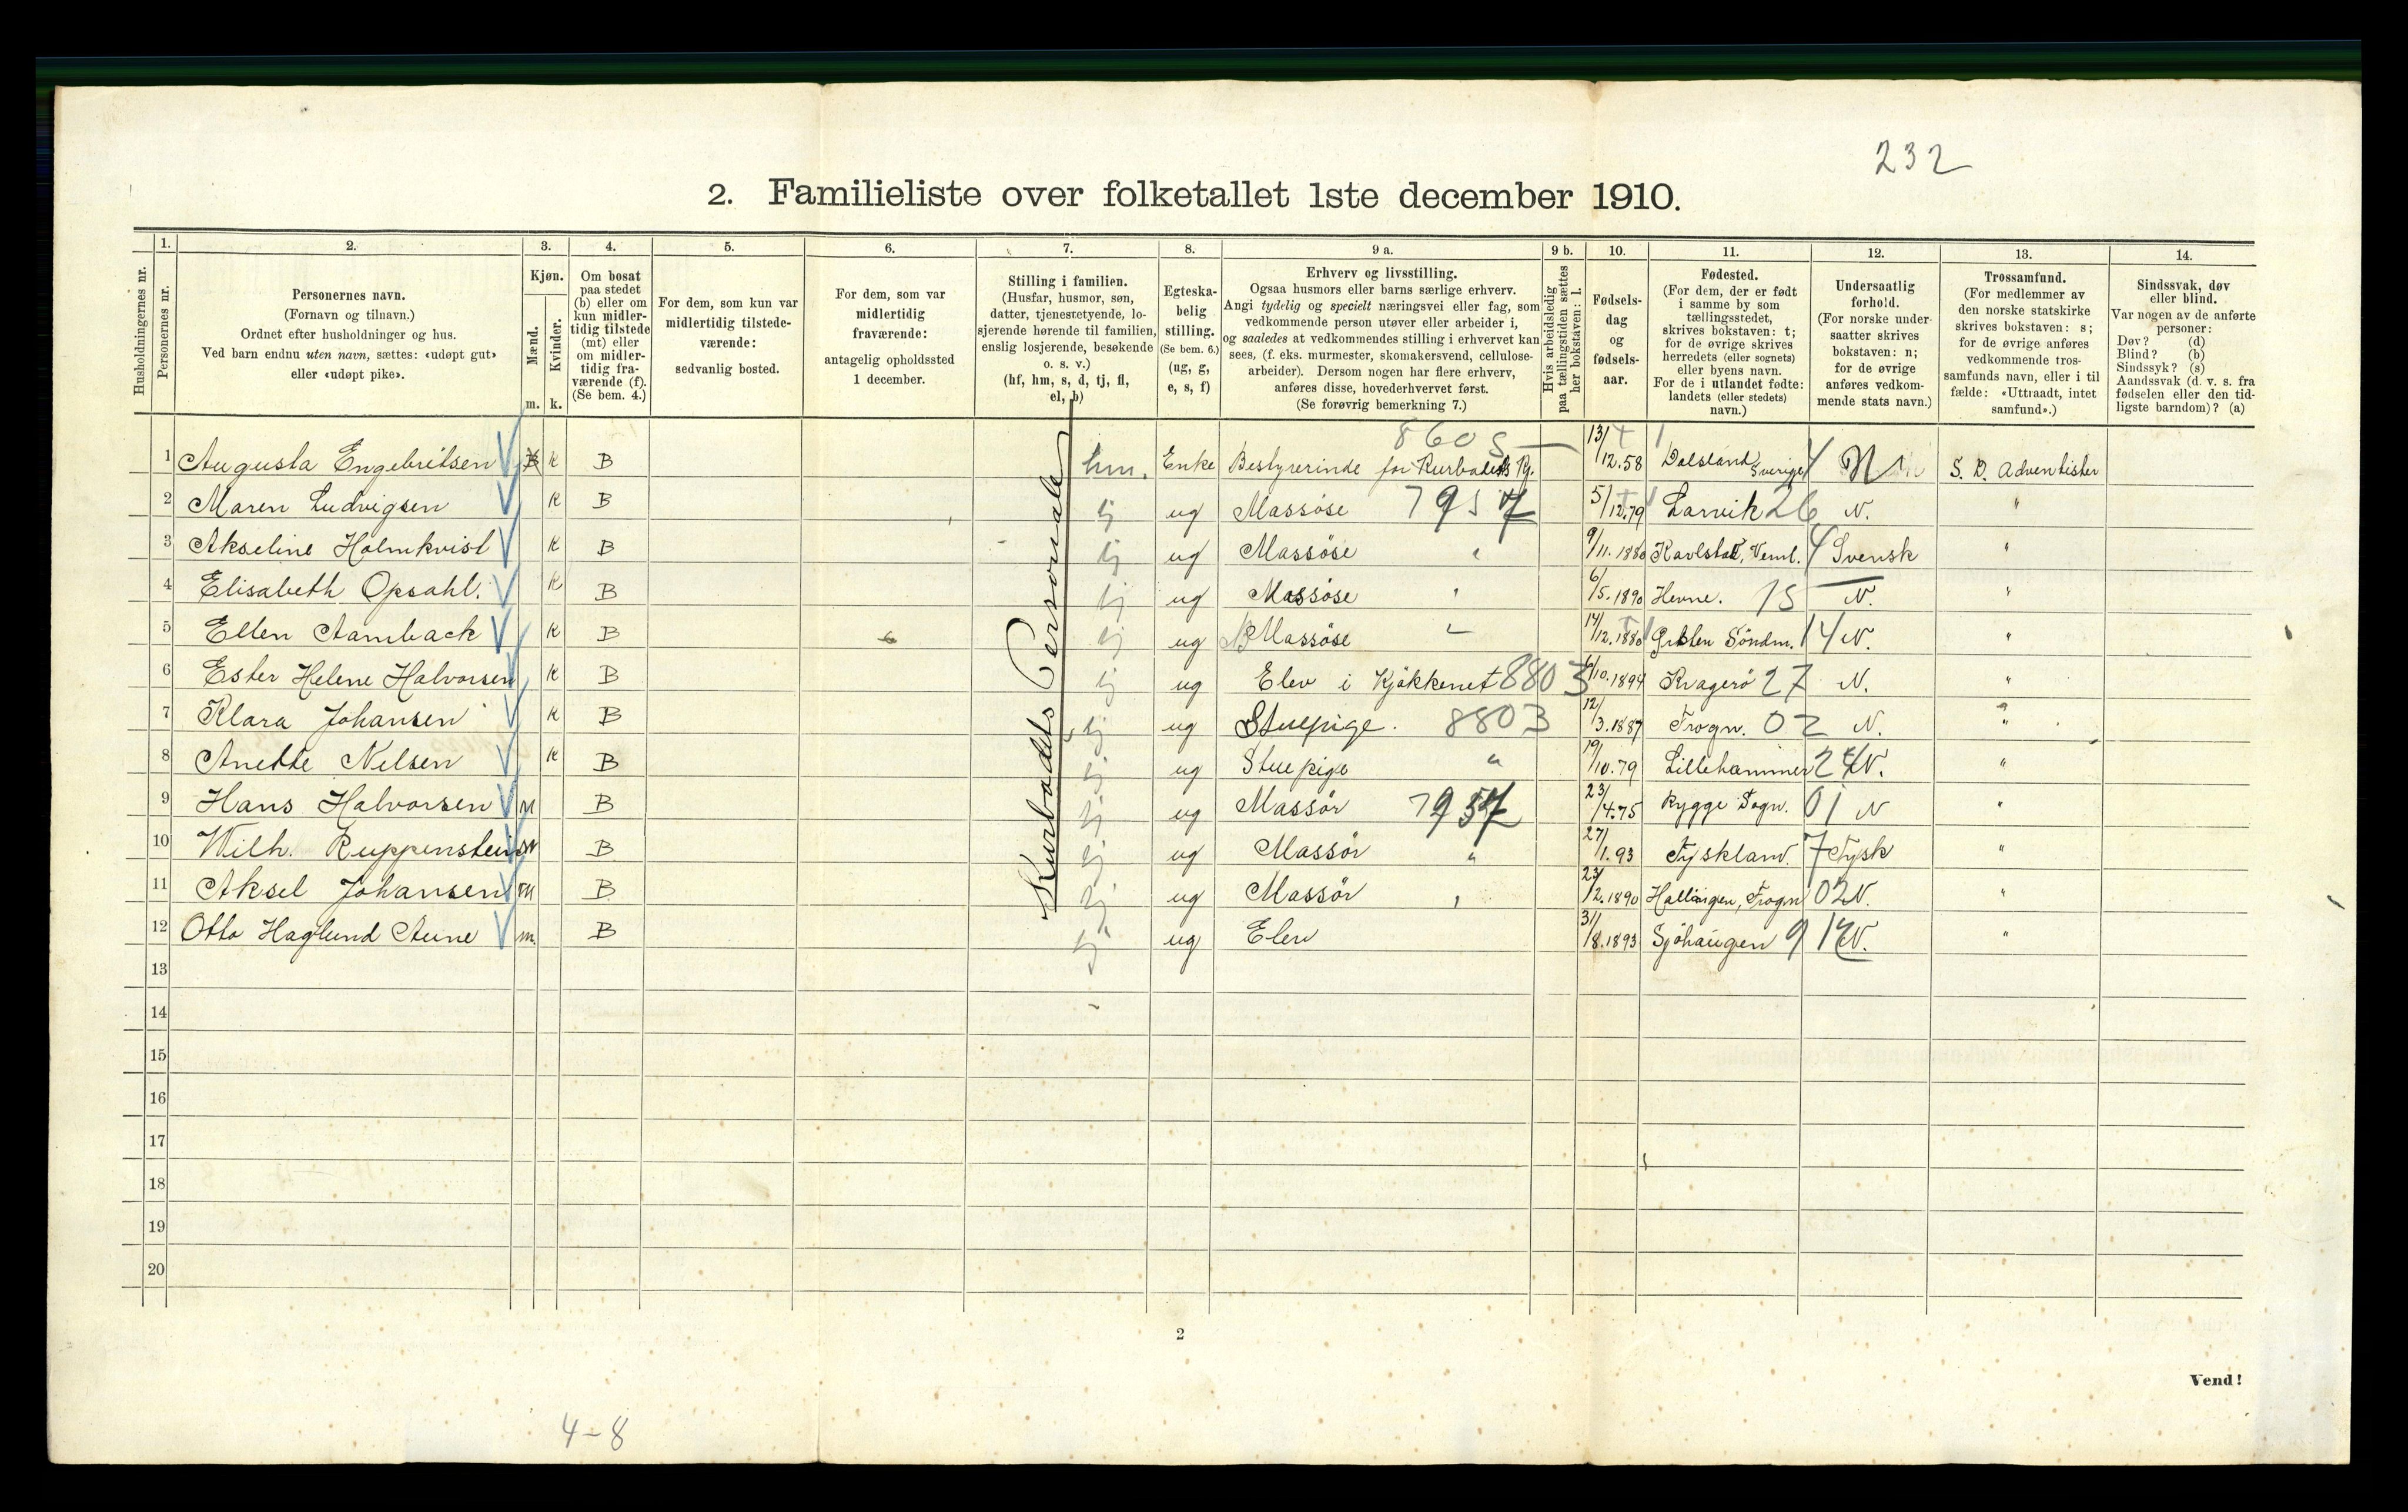 232
2. Familieliste over folketallet 1ste december 1910.
Husholdningernes nr.
1. Personernes nr.
2. Personernes navn.
(Fornavn og tilnavn.)
Ordnet efter husholdninger og hus.
Ved barn endnu uten navn, sættes: «udøpt gut»
eller «udøpt pike».
3. Kjøn.
Mænd. m.
Kvinder. k.
4. Om bosat
paa stedet
(b) eller om
kun midler-
tidig tilstede
(mt) eller
om midler-
tidig fra-
værende (f).
(Se bem. 4.)
5. For dem, som kun var
midlertidig tilstede-
værende:
sedvanlig bosted.
6. For dem, som var
midlertidig
fraværende:
antagelig opholdssted
1 december.
7. Stilling i familien.
(Husfar, husmor, søn,
datter, tjenestetyende, lo-
sjerende hørende til familien,
enslig losjerende, besøkende
o. s. v.)
(hf, hm, s, d, tj, fl,
el, b)
8. Egteska-
belig
stilling.
(Se bem. 6.)
(ug, g,
e, s, f)
9 a. Erhverv og livsstilling.
Ogsaa husmors eller barns særlige erhverv.
Angi tydelig og specielt næringsvei eller fag, som
vedkommende person utøver eller arbeider i,
og saaledes at vedkommendes stilling i erhvervet kan
sees, (f. eks. murmester, skomakersvend, cellulose-
arbeider). Dersom nogen har flere erhverv,
anføres disse, hovederhvervet først.
(Se forøvrig bemerkning 7.)
9 b. Hvis arbeidsledig
paa tællingstiden sættes
her bokstaven: l.
10. Fødsels-
dag
og
fødsels-
aar.
11. Fødested.
(For dem, der er født
i samme by som
tællingsstedet,
skrives bokstaven: t;
for de øvrige skrives
herredets (eller sognets)
eller byens navn.
For de i utlandet fødte:
landets (eller stedets)
navn.)
12. Undersaatlig
forhold.
(For norske under-
saatter skrives
bokstaven: n;
for de øvrige
anføres vedkom-
mende stats navn.)
13. Trossamfund.
(For medlemmer av
den norske statskirke
skrives bokstaven: s;
for de øvrige anføres
vedkommende tros-
samfunds navn, eller i til
fælde: «Uttraadt, intet
samfund».)
14. Sindssvak, døv
eller blind.
Var nogen av de anførte
personer:
Døv? (d)
Blind? (b)
Sindssyk? (s)
Aandssvak (d. v. s. fra
fødselen eller den tid-
ligste barndom)? (a)
Kurbadets Personale
1 Augusta Engebritsen K B hm. Enke Bestyrerinde for Kurbadets 8605 13/12.58 Dalsland Sverige N S. D. Adventister
2 Maren Ludvigsen K B tj ug Massøse 7957 5/12.79 Larvik 26 N. "
3 Akseline Holmkvist K B tj ug Massøse " 9/11.1880 Karlstad, Verml. 4 Svensk "
4 Elisabeth Opsahl. K B tj ug Massøse " 6/5.1890 Hevne. 15 N. "
5 Ellen Aamback K B tj ug Massøse 14/12.1880 Søndm. 14 N. "
6 Ester Helene Halvorsen K B tj ug Elev i Kjøkkenet 8803 /10.1894 Kragerö 27 N. "
7 Klara Johansen K B tj ug Stuepige. 8803 12/3.1887 Frogn. 02 N. "
8 Anette Nelsen K B tj ug Stuepige " 19/10.79 Lillehammer 24 N. "
9 Hans Halvorsen M B tj ug Massør 7957 23/4.75 Rygge Sogn. 01 N "
10 Wilh. Ruppenstein M B tj ug Massör " 27/1.93 Tyskland. 7 Tysk "
11 Aksel Johansen M B tj ug Massör " 23/2.1890 Hallangen, Frogn 02 N. "
12 Otto Haglund Aune m. B tj ug Elev 31/8.1893 Sjöhaugen 9 N. "
13
14
15
16
17
18
19
20
2
Vend!
4-8